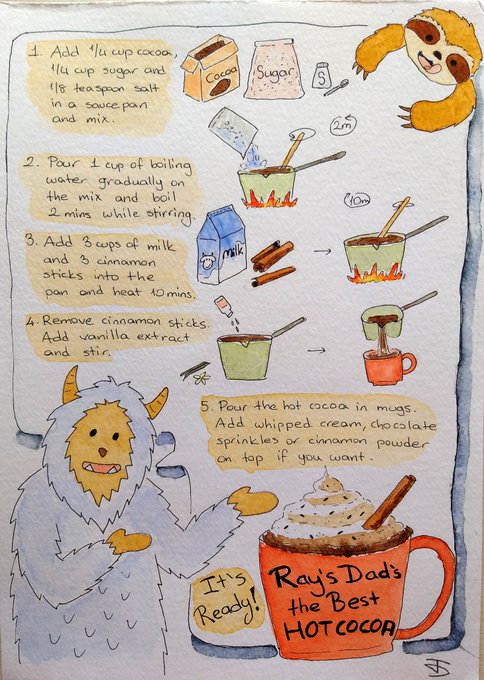 1. Add 1/4 cup cocoa,
1/4 cup sugar and
1/8 teaspoon salt
in a saucepan
and mix.
Cocoa
Sugar
S
2m
2. Pour 1 cup of boiling
water gradually on
the mix and boil
2 mins while stirring.
10m
3. Add 3 cups of milk
and 3 cinnamon
sticks into the
pan and heat 10 mins.
Milk
4. Remove cinnamon sticks.
Add vanilla extract
and stir.
5. Pour the hot cocoa in mugs.
Add whipped cream, chocolate
sprinkles or cinnamon powder
on top if you want.
It's
Ready!
Ray's Dad's
the Best
HOT COCOA